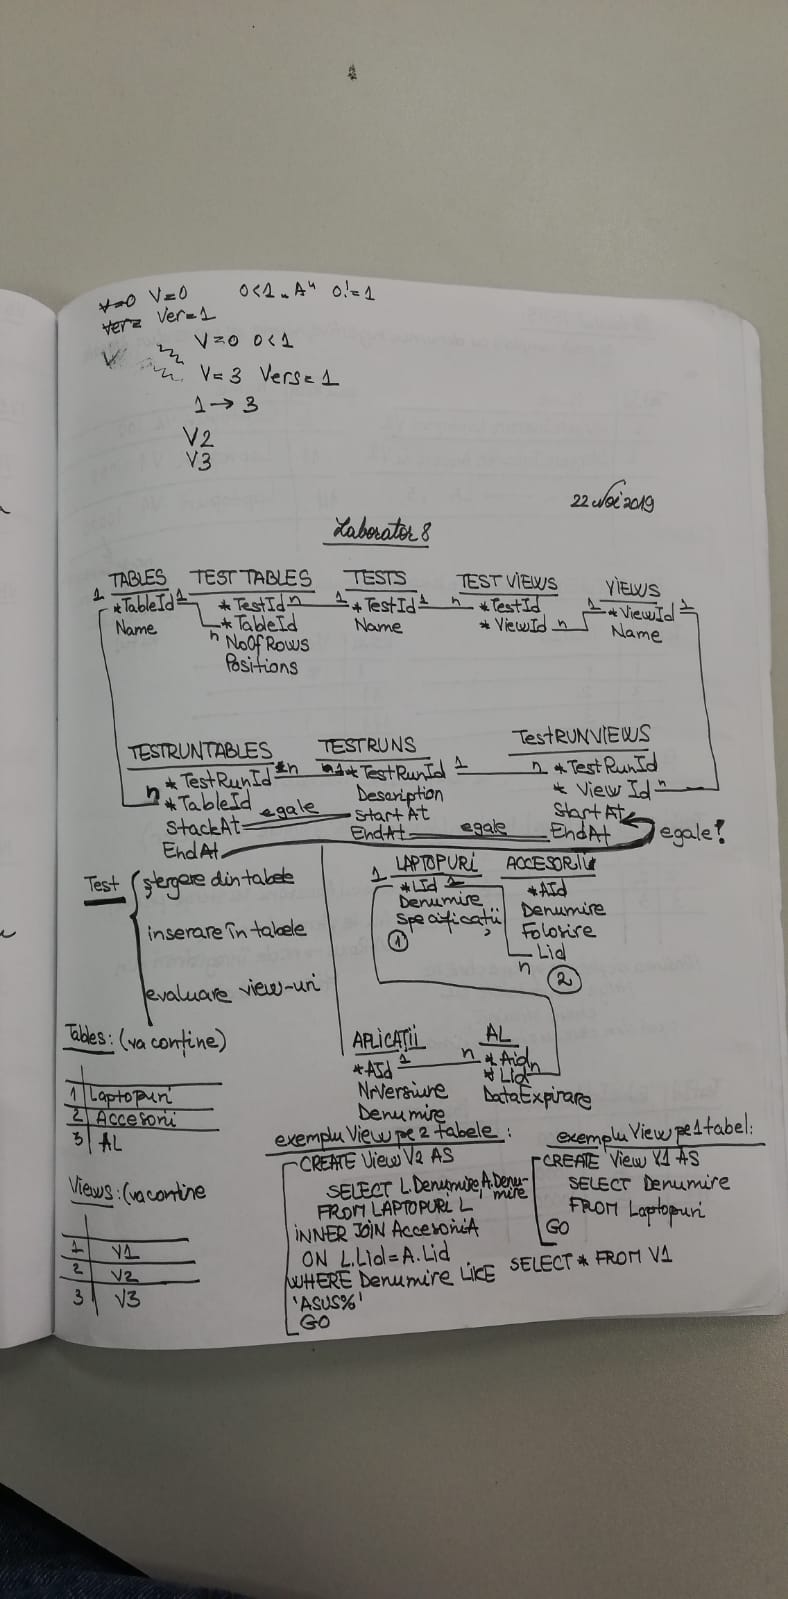 V=0 V=0 0<1 "A" 0!=1
Ver= Ver=1
V V=0 0<1
V=3 Vers=1
1→3
V2
V3
22 Noi 2019
Laborator 8
TABLES
1 *TableId 1
Name
TEST TABLES
*TestId n
*TableId
n NoOfRows
Positions
TESTS
1 *TestId 1
Name
TEST VIEWS
n *TestId
*ViewId n
VIEWS
1 *ViewId 1
Name
TESTRUNTABLES
n *TestRunId n
*TableId
StackAt egale
EndAt
TESTRUNS
1 *TestRunId 1
Description
StartAt
EndAt egale
TestRUNVIEWS
n *TestRunId
*View Id n
StartAt
EndAt egale!
Test
ștergere din tabele
inserare în tabele
evaluare view-uri
LAPTOPURI
1 *LId 1
Denumire
Specificații
1
ACCESORII
*AId
Denumire
Folosire
Lid
n 2
APLICAȚII
*AId 1
NrVersiune
Denumire
AL
n *Aid n
*Lid
DataExpirare
Tables: (va conține)
1 Laptopuri
2 Accesorii
3 AL
Views: (va conține
1 V1
2 V2
3 V3
exemplu View pe 2 tabele:
CREATE View V2 AS
SELECT L.Denumire, A.Denu-
mire
FROM LAPTOPURI L
INNER JOIN Accesorii A
ON L.Lid=A.Lid
WHERE Denumire LIKE
'ASUS%'
GO
exemplu View pe 1 tabel:
CREATE View V1 AS
SELECT Denumire
FROM Laptopuri
GO
SELECT * FROM V1